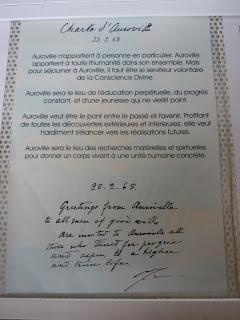 Charte d'Auroville
28.2.68
Auroville n'appartient à personne en particulier. Auroville
appartient à toute l'humanité dans son ensemble. Mais
pour séjourner à Auroville, il faut être le serviteur volontaire
de la Conscience Divine.
Auroville sera le lieu de l'éducation perpétuelle, du progrès
constant, et d'une jeunesse qui ne vieillit point.
Auroville veut être le pont entre le passé et l'avenir. Profitant
de toutes les découvertes extérieures et intérieures, elle veut
hardiment s'élancer vers les réalisations futures.
Auroville sera le lieu des recherches matérielles et spirituelles
pour donner un corps vivant à une unité humaine concrète.
28.2.68.
Greetings from Auroville
to all men of good will.
are invited to Auroville all
those who thirst for progress
and aspire to a higher
and truer life.